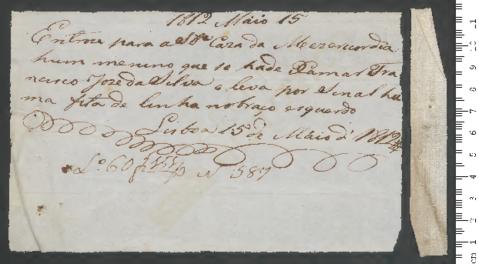 1812 Maio 15
Entrou para a Sta Caza da Mezericordia
hum menino que se hade xamar Fra
ncisco Joze da Silva e leva por Sinal hu
ma fita de linha no braço esquerdo
Lisboa 15 de Maio d' 1812
Lo 60 N 587